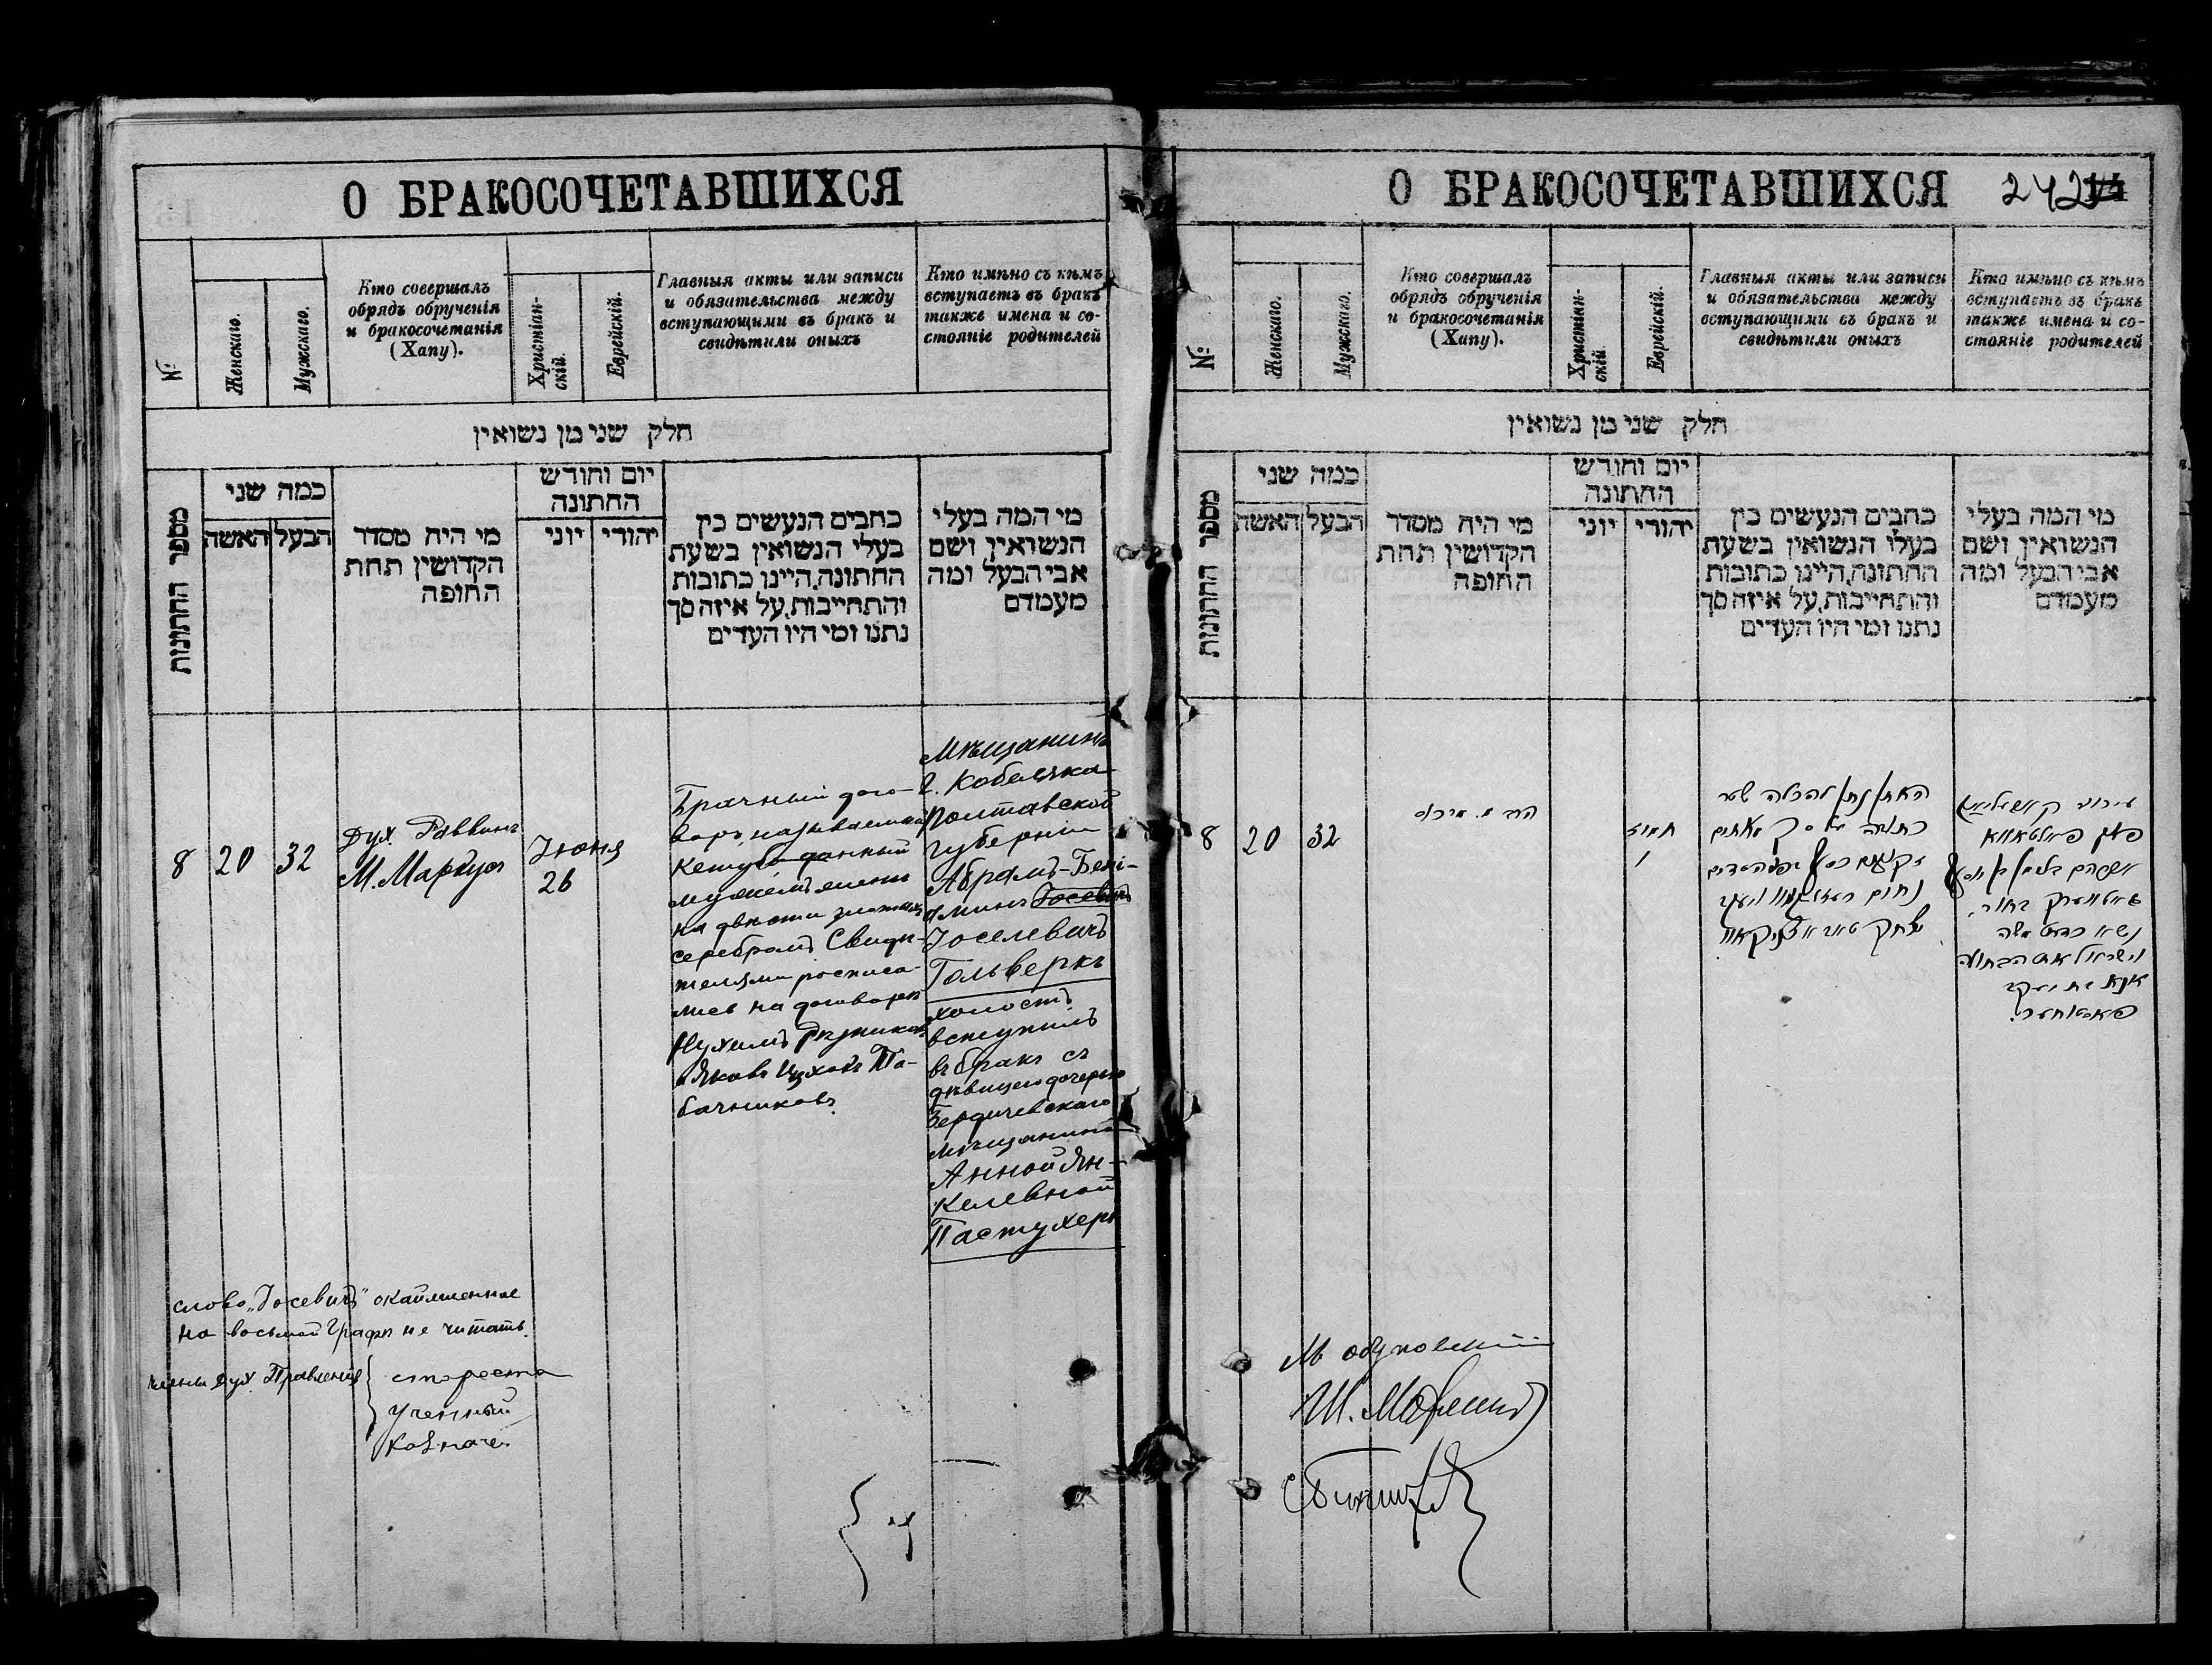 О БРАКОСОЧЕТАВШИХСЯ
№
Женскаго.
Мужскаго.
Кто совершалъ
обрядъ обрученія
и бракосочетанія
(Хапу).
Христіан-
скій.
Еврейскій.
Главныя акты или записи
и обязательства между
вступающими въ бракъ и
свидѣтили оныхъ
Кто имѣно съ кѣмъ
вступаетъ въ бракъ
также имена и со-
стояніе родителей
חלק שני מן נשואין
מספר החתונות
כמה שני
האשה
הבעל
מי היה מסדר
הקדושין תחת
החופה
יום וחודש
החתונה
יוני
יהודי
כתבים הנעשים בין
בעלי הנשואין בשעת
החתונה,היינו כתובות
והתחייבות,על איזה סך
נתנו ומי היו העדים
מי המה בעלי
הנשואין ושם
אבי הבעל ומה
מעמדם
8
20
32
Дух. Раввинъ
М. Маркусъ
Іюня
26
Брачный дого-
воръ, называемый
Кетуба данный
мужемъ женѣ
на двѣсти злотыхъ
серебромъ Свидѣ-
телями росписа-
лись на договорѣ
Нухимъ Рѣзниковъ
и Яковъ Ицхокъ Та-
бачниковъ.
Мѣщанинъ
г. Кобеляка
Полтавской
губерніи
Абрамъ-Бені-
аминъ Іосевичъ
Іоселевичъ
Гольверкъ
холостъ
вступилъ
въ бракъ съ
дѣвицею дочерью
Бердичевскаго
мѣщанина
Анной Ян-
келевной
Пастухеръ
слово „Іосевичъ" окаймленное
на восьмой графѣ не читать.
члены Дух. Правленія
староста
ученный
казначей
О БРАКОСОЧЕТАВШИХСЯ
242
№
Женскаго.
Мужскаго.
Кто совершалъ
обрядъ обрученія
и бракосочетанія
(Хапу).
Христіан-
скій
Еврейскій.
Главныя акты или записи
и обязательства между
вступающими въ бракъ и
свидѣтили оныхъ
Кто имѣно съ кѣмъ
вступаетъ въ бракъ
также имена и со-
стояніе родителей
חלק שני מן נשואין
מספר החתונות
כמה שני
האשה
הבעל
מי היה מסדר
הקדושין תחת
החופה
יום וחודש
החתונה
יוני
יהודי
כתבים הנעשים בין
בעלי הנשואין בשעת
החתונה,היינו כתובות
והתחייבות,על איזה סך
נתנו ומי היו העדים
מי המה בעלי
הנשואין ושם
אבי הבעל ומה
מעמדם
8
20
32
הרב מ. מרכוס
תמוז
החתן נתן להכלה שטר
כתובה על סך מאתים
זקוקים כסף
נחום
יצחק
נשא כדת משה
וישראל את הבתולה
אנא בת יעקב
פאסטוכער.